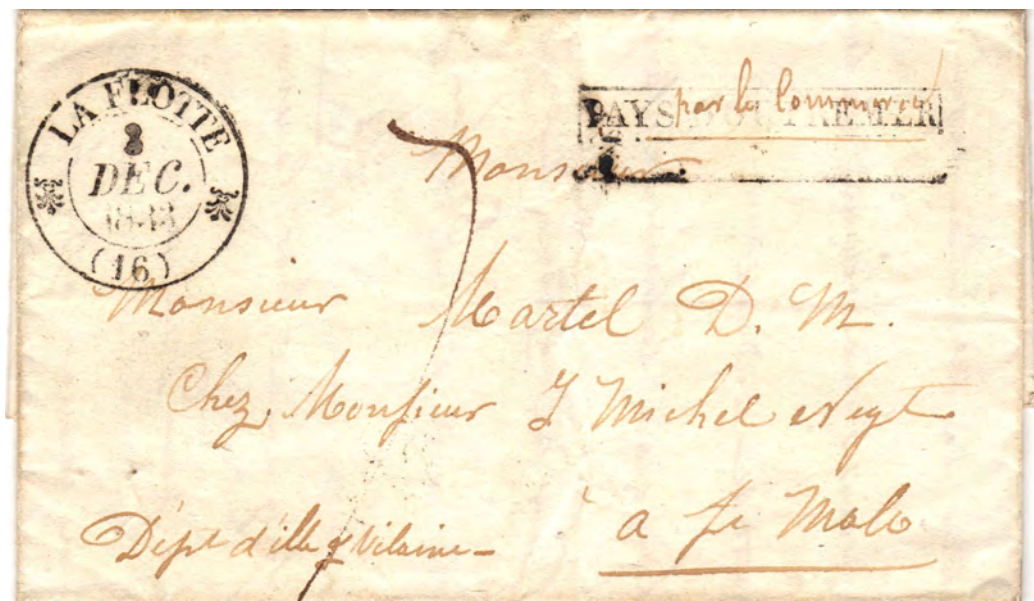 LA FLOTTE
8
DEC.
1843
(16)
par le Commerce
PAYS D'OUTREMER
Monsieur
Monsieur Martel D. M.
Chez Monsieur J Michel Negt
à St Malo
Dépt d'ille & Vilaine